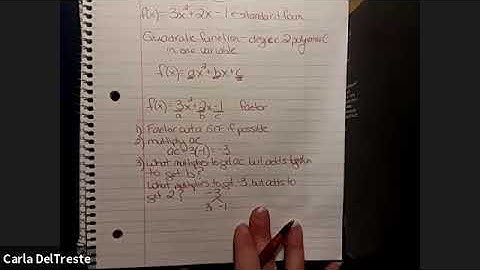 f(x)=3x²+2x-1 ← standard form
Quadratic function - degree 2 polynomial
in one variable
f(x)= ax²+bx+c
f(x)= 3x²+2x-1 Factor
a b c
1) Factor out a GCF if possible
2) multiply ac
ac = 3(-1) = -3
3) what multiplies to get ac but adds
to get b?
what multiplies to get -3 but adds to
get 2? -3
3 -1
Carla DelTreste